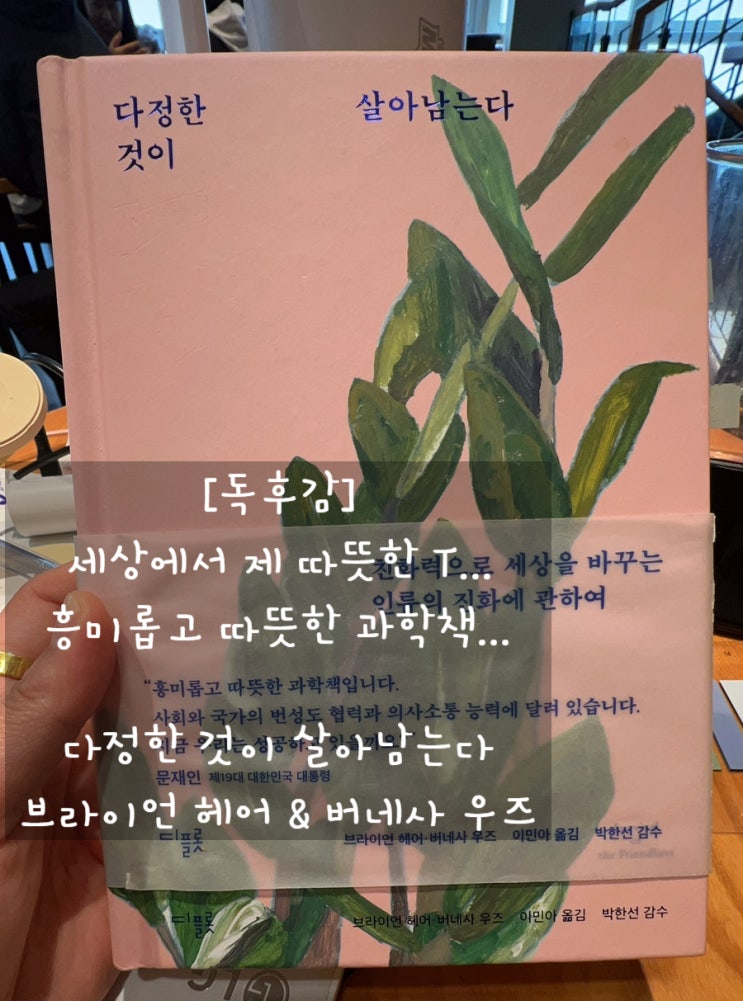 다정한 것이
살아남는다
[독후감]
세상에서 제 따뜻한 T...
흥미롭고 따뜻한 과학책...
친화력으로 세상을 바꾸는
인류의 진화에 관하여
“흥미롭고 따뜻한 과학책입니다.
사회와 국가의 번성도 협력과 의사소통 능력에 달려 있습니다.
우리는 성공하고
문재인 제19대 대한민국 대통령
다정한 것이 살아남는다
브라이언 헤어 & 버네사 우즈
디플롯
브라이언 헤어·버네사 우즈 이민아 옮김 박한선 감수
디플롯
브라이언 헤어·버네사 우즈 이민아 옮김 박한선 감수